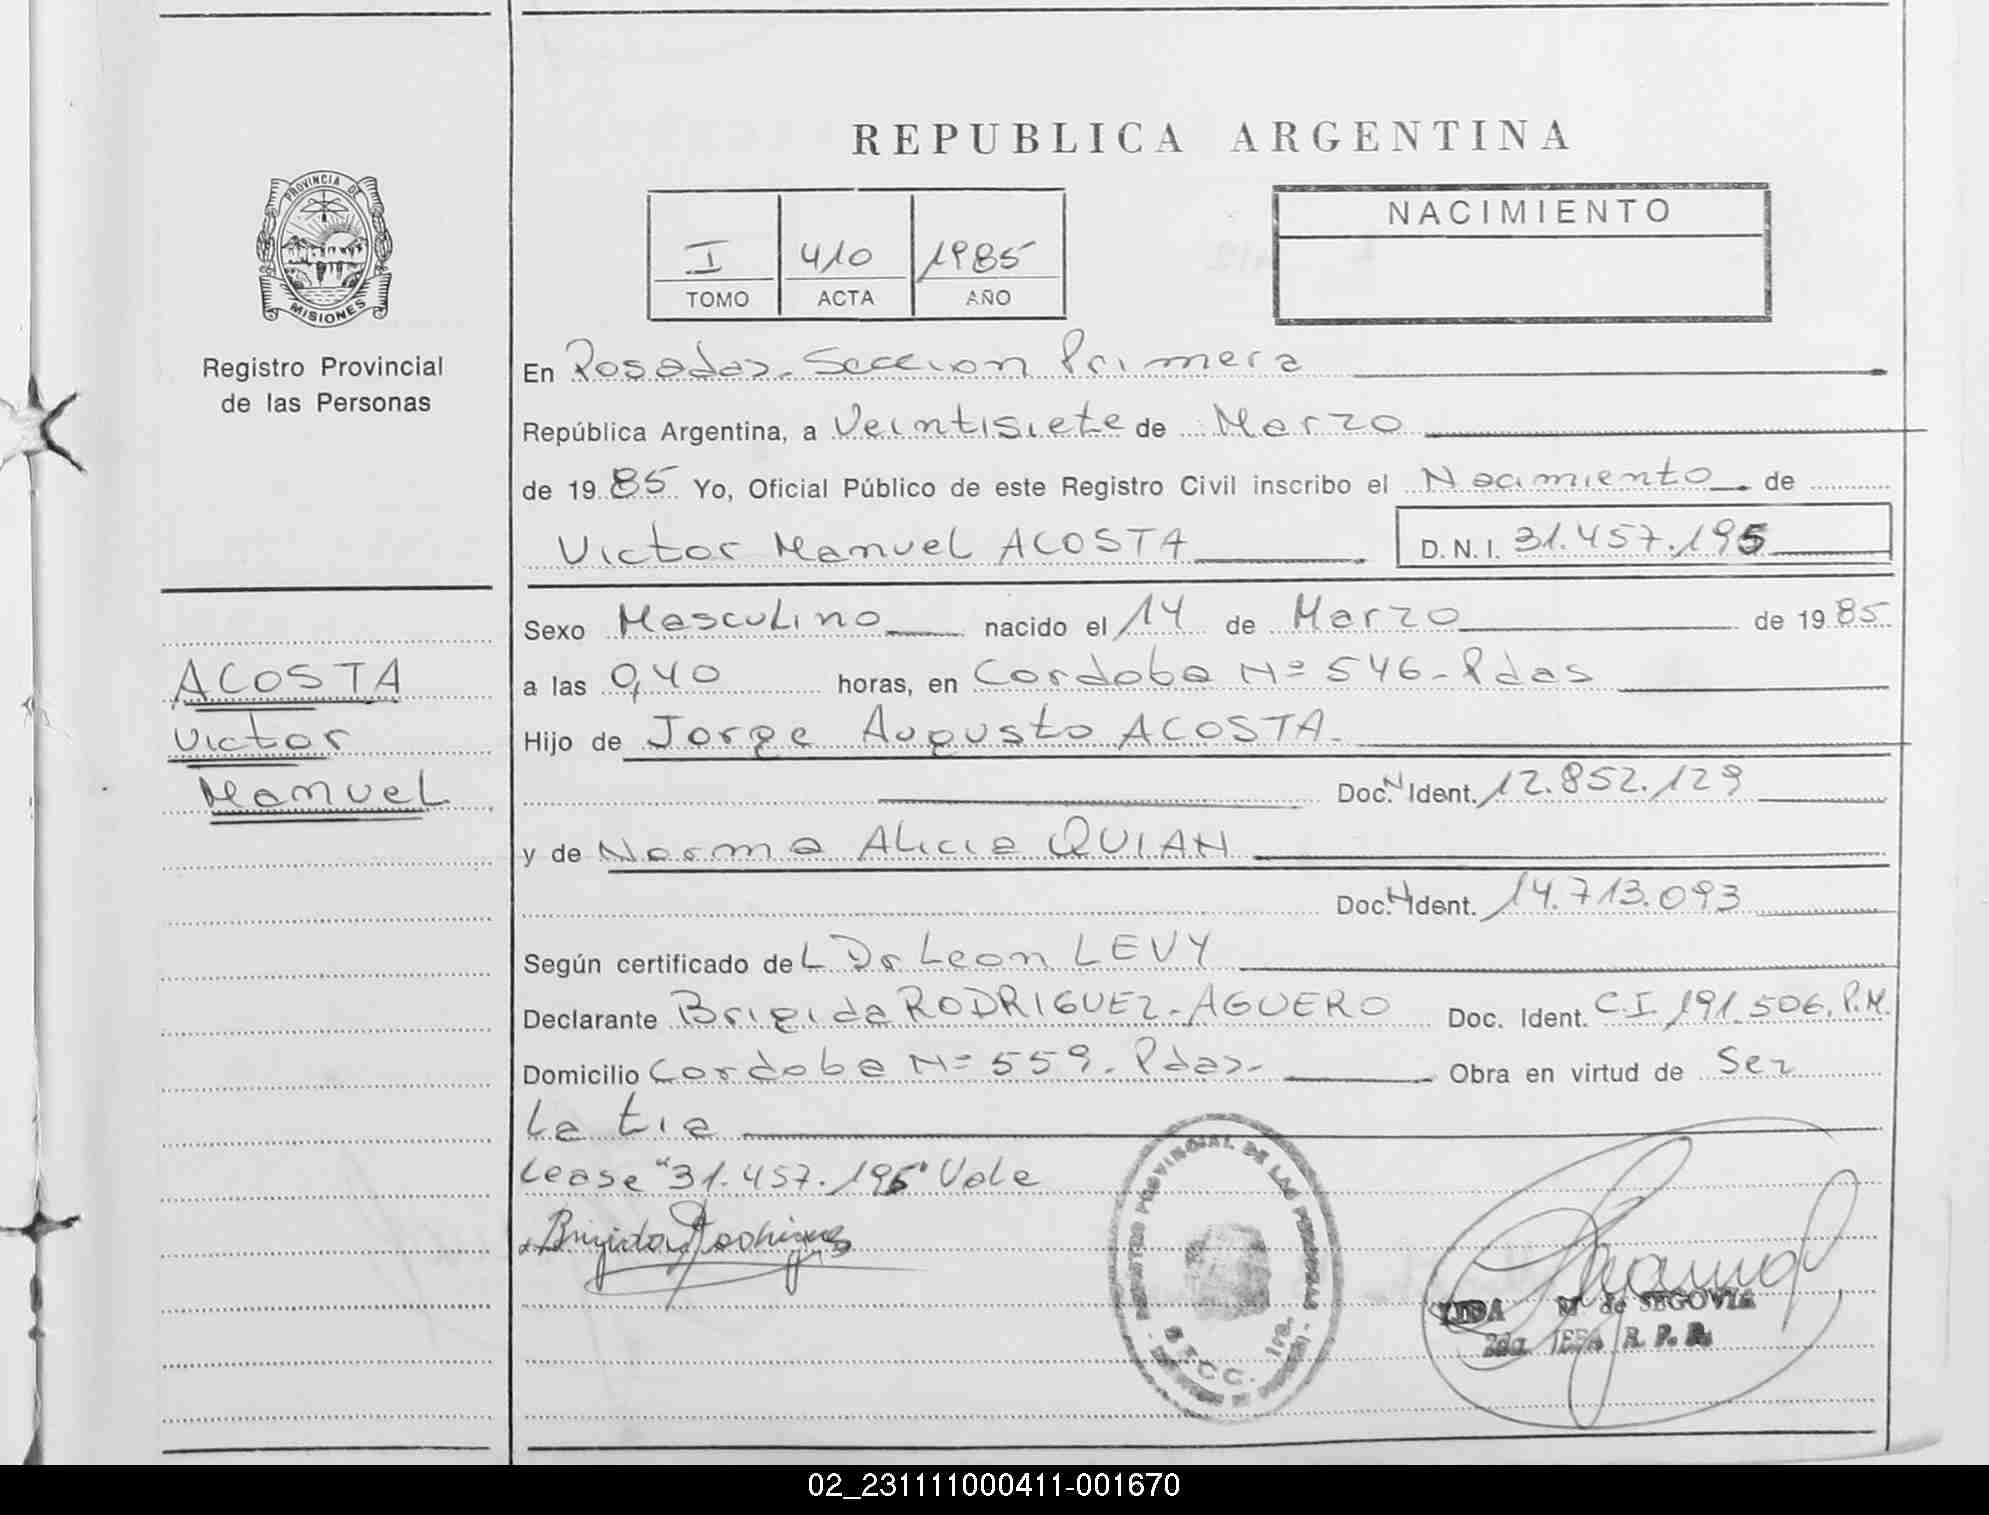 REPUBLICA ARGENTINA
PROVINCIA DE
MISIONES
Registro Provincial
de las Personas
I 410 1985
TOMO ACTA AÑO
NACIMIENTO
En Posadas. Seccion Primera
República Argentina, a Veintisiete de Marzo
de 19 85 Yo, Oficial Público de este Registro Civil inscribo el Nacimiento de
Victor Manuel ACOSTA D.N.I. 31.457.195
Sexo Masculino nacido el 14 de Marzo de 19 85
a las 0,40 horas, en Cordoba Nº 546 - Pdas
Hijo de Jorge Augusto ACOSTA.
Doc.N Ident. 12.852.129
y de Norma Alicia QUIAN
Doc.N Ident. 14.713.093
Según certificado deL Dr Leon LEVY
Declarante Brigida RODRIGUEZ - AGUERO Doc. Ident. C.I 191.506. P.M.
Domicilio Cordoba Nº 559. Pdas. Obra en virtud de Ser
La tia
Lease "31.457.195" Vale
Brigida Rodriguez
ACOSTA
Victor
Manuel
PROVINCIAL DE LAS PERSONAS
SECC. 1ra.
M. de SEGOVIA
2da. JEFA R. P. P.
02_231111000411-001670